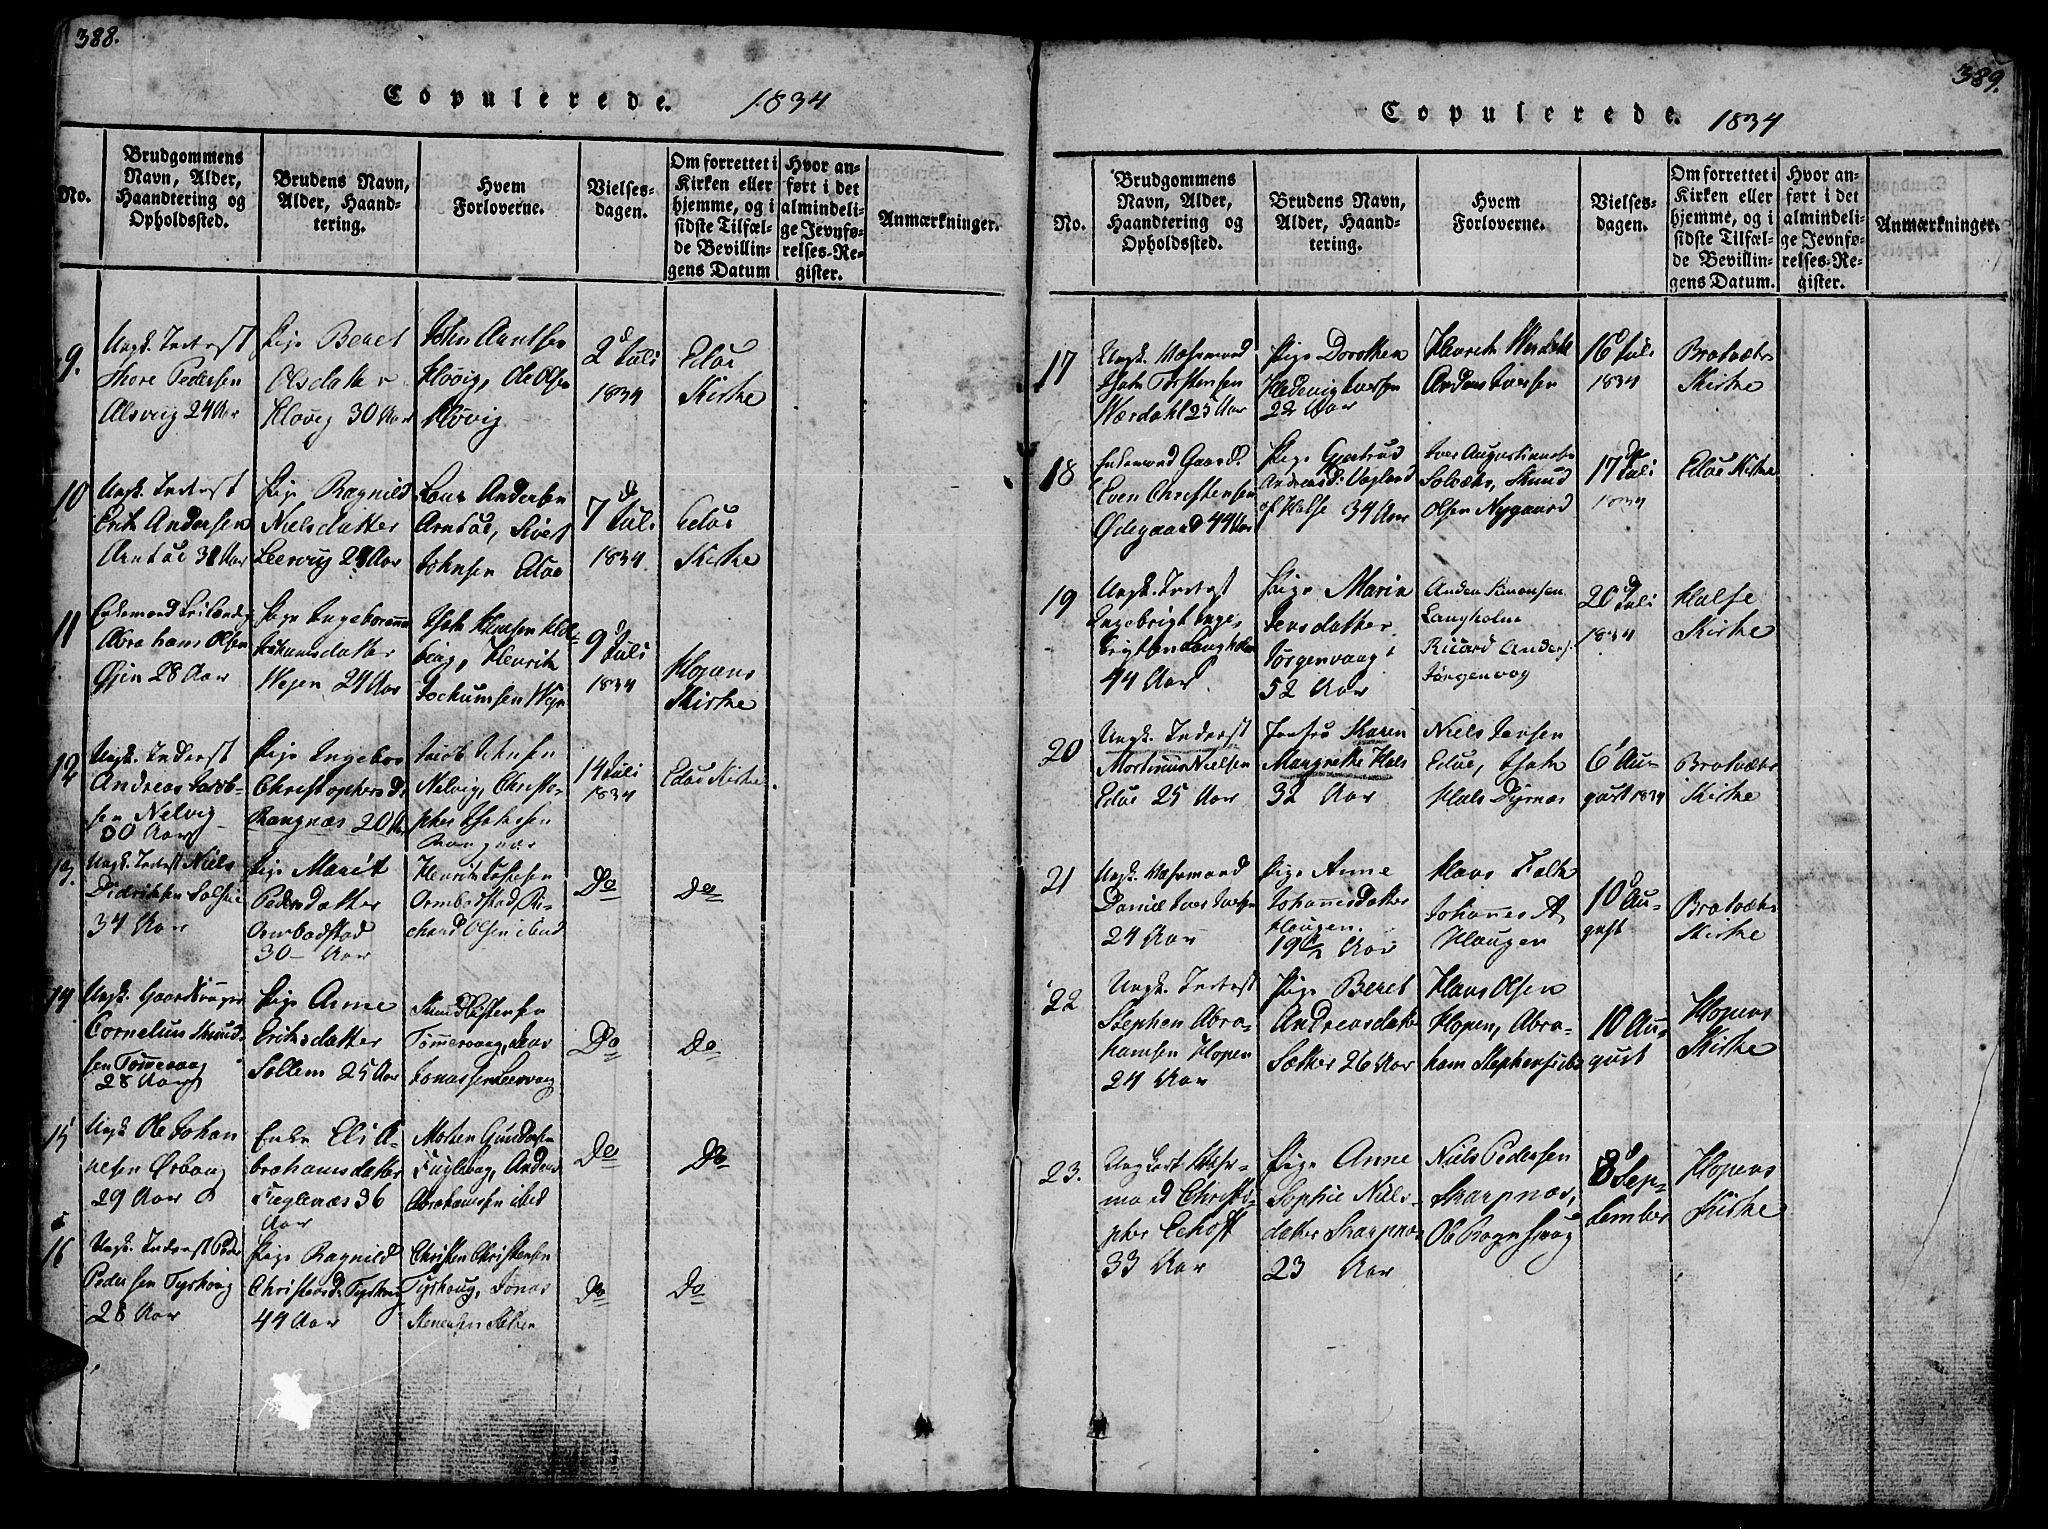 388.
Copulerede. 1834
No.
Brudgommens
Navn, Alder,
Haandtering og
Opholdssted.
Brudens Navn,
Alder, Haand-
tering.
Hvem
Forloverne.
Vielses-
dagen.
Om forrettet i
Kirken eller
hjemme, og i
sidste Tilfæl-
de Bevillin-
gens Datum
Hvor an-
ført i det
almindeli-
ge Jevnfø-
relses-Re-
gister.
Anmærkninger.
9.
Ungk. Inderst
Thore Pedersen
Alsvig 24 Aar
Pige Beret
Olsdatter
Kløvig 30 Aar
John Arntsen
Kløvig, Ole Olsen
Kløvig
2d Juli
1834
Edøe
Kirke
10
Ungk. Inderst
Erik Andersen
Arntøe
Pige Ragnild
Nielsdatter
Leervig
Andersen
Arntøe, Sivert
Johnsen Edøe
7d Juli
1834.
Edøe
Kirke
11
Enkemand
Abraham Olsen
Øjen 28 Aar
Pige
Johansdatter
Wejen 24 Aar
Henrik
Jochumsen
9d Juli
1834
Hopens
Kirke
12
Ungk. Inderst
Andreas Jacob-
sen Nelvig
30 Aar
Pige Ingebor
Christophersd.
Rangnæs 20
Jacob Johnsen
Nelvig, Christo-
pher
14 Juli
1834
Edøe Kirke.
13.
Ungk. Inderst Niels
Didriksen
34 Aar
Pige Marit
Pedersdatter
Ormbostad
30 Aar
Henrik
Ormbostad, Ri-
chard Olsen ibid
Do
Do
14
Ungk.
Cornelius Knud-
sen Tømmervaag
28 Aar
Pige Anne
Eriksdatter
Sollem 25 Aar
Knud
Tømmervaag, Jens
Jonassen Leervaag
Do
Do
15
Ungk Ole Johan
nesen
29 Aar
Enke Eli A-
brahamsdatter
Fuglenæs 36
Aar
Morten Gundersen
Fuglevog, Anders
Abrahamsen ibid
Do
Do
16
Ungk. Inderst Peder
Pedersen Tyrhoug
28 Aar
Pige Ragnild
Christensd. Tyrhoug
44 Aar
Christen Christensen
Tyrhoug, Jonas
Do
Do
389.
Copulerede. 1834
No.
Brudgommens
Navn, Alder,
Haandtering og
Opholdssted.
Brudens Navn,
Alder, Haand-
tering.
Hvem
Forloverne.
Vielses-
dagen.
Om forrettet i
Kirken eller
hjemme, og i
sidste Tilfæl-
de Bevillin-
gens Datum.
Hvor an-
ført i det
almindeli-
ge Jevnfø-
relses-Re-
gister.
Anmærkninger.
17
Ungk.
Torstensen
Wærdahl 25 Aar
Pige Dorothea
Hedevig Iversen
22 Aar
Henrik Werdahl
Anders Iversen
16d Juli
1834
Bratvær
Kirke
18
Enkemand Gaard.
Even Christensen
Ødegaard 44 Aar
Pige Gjertrud
Andreasd. Vagland
af Halse 34 Aar
Iver
Knud
Olsen Nygaard
17d Juli
1834
Edøe Kirke
19
Ungk. Inderst
Ingebrigt Inge-
brigtsen Langholm
44 Aar
Pige Marin
Jensdatter
Jørgenvaag
52 Aar
Anders Simonsen
Langholm
Ricard Anders.
Jørgenvog
20d Juli
1834
Halse
Kirke
20
Ungk. Inderst
Mortinus Nielsen
Edøe 25 Aar
Jomfru Maren
Margrethe Hals
32 Aar
Niels Jensen
Edøe,
Hals Dyrnæs
6 Au-
gust 1834
Bratvær
Kirke
21
Ungk.
Daniel Iver Iversen
24 Aar
Pige Anne
Johannesdatter
Haugen.
19½ Aar
Klaus Falk
Johannes A
Haugen
10d Au-
gust
Bratvær
Kirke
22
Ungk. Inderst
Stephen Abra-
hamsen Hopen
24 Aar
Pige Beret
Andreasdatter
Sætter 26 Aar
Hans Olsen
Hopen, Abra-
ham Stephensen ibd
10 Au-
gust
Hopens
Kirke
23.
Christo-
pher Echoff
33 Aar
Pige Anne
Sophie Niels-
datter Skarpnæs
23 Aar
Niels Pedersen
Skarpnæs,
Ole
8d Sep-
tember
Hopens
Kirke